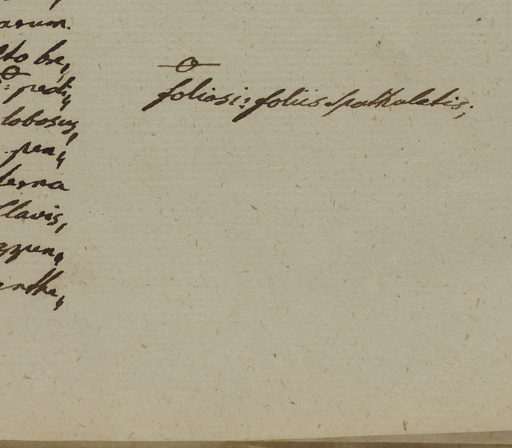 arum.
to bre„
: ped„
lobosus,
. pen„
terna
flavis,
appen„
anthe„
foliosi: foliis spathulatis;